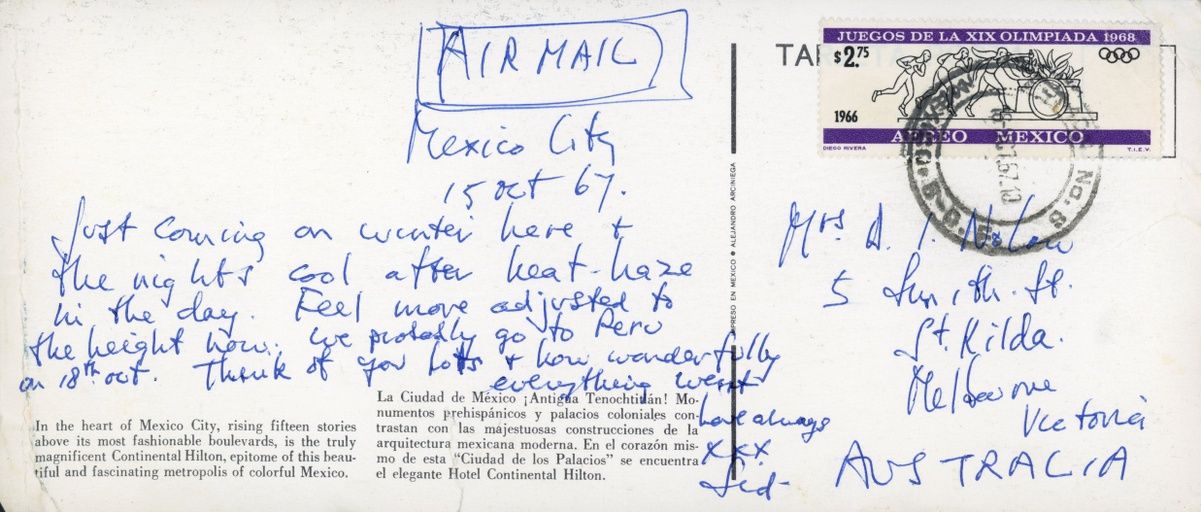 AIR MAIL
Mexico City
15 Oct 67.
Just coming on winter here &
the nights cool after heat-haze
in the day. Feel more adjusted to
the height now. We probably go to Peru
on 18th Oct. Think of you lots & how wonderfully
everything went
Love always
xxx.
Sid-
In the heart of Mexico City, rising fifteen stories
above its most fashionable boulevards, is the truly
magnificent Continental Hilton, epitome of this beau-
tiful and fascinating metropolis of colorful Mexico.
La Ciudad de México ¡Antigua Tenochtitlán! Mo-
numentos prehispánicos y palacios coloniales con-
trastan con las majestuosas construcciones de la
arquitectura mexicana moderna. En el corazón mis-
mo de esta "Ciudad de los Palacios" se encuentra
el elegante Hotel Continental Hilton.
IMPRESO EN MEXICO • ALEJANDRO ARCINIEGA
TAR
JUEGOS DE LA XIX OLIMPIADA 1968
$2.75
1966
AEREO MEXICO
DIEGO RIVERA
T.I.E.V.
Mrs. A. I. Nolan
5 Smith. St.
St. Kilda.
Melbourne
Victoria
AUSTRALIA